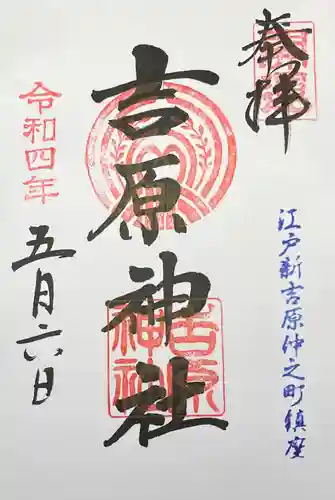 奉拝
江戸新吉原仲之町鎮座
吉原神社
吉原神社
令和四年
五月六日